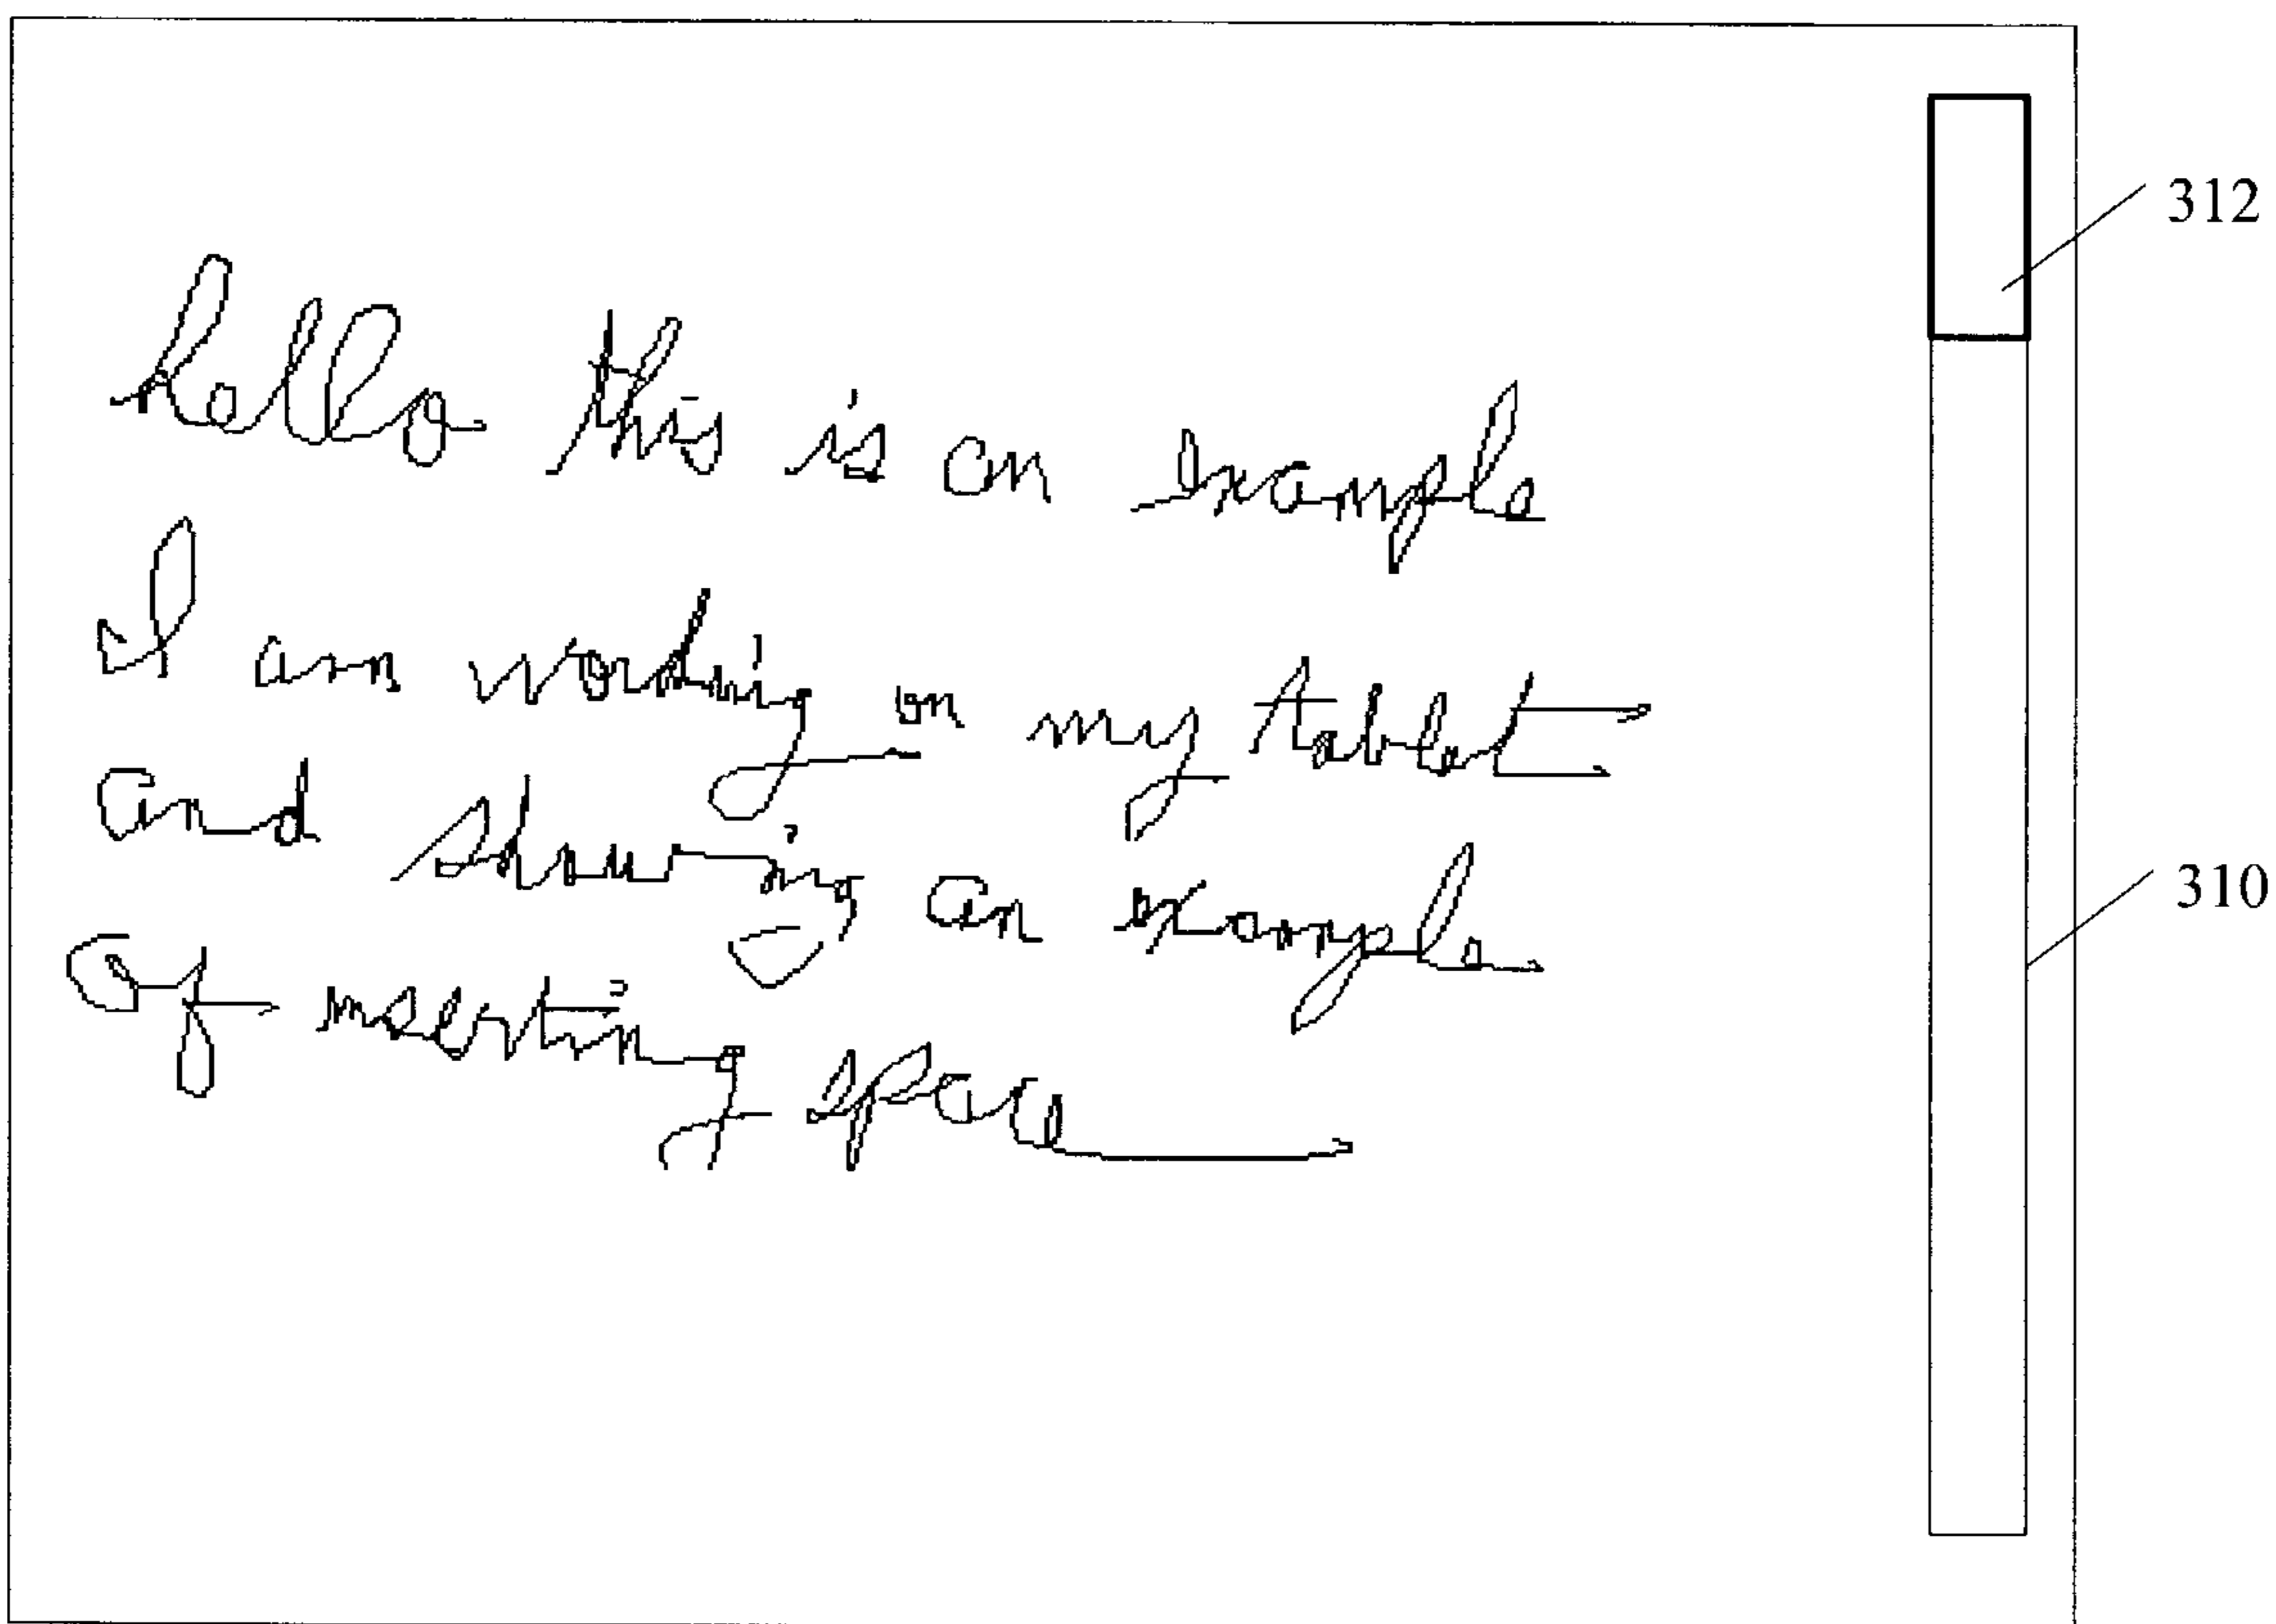 312
hello this is an example
I am working on my tablet
310
and showing an example
Of inserting space